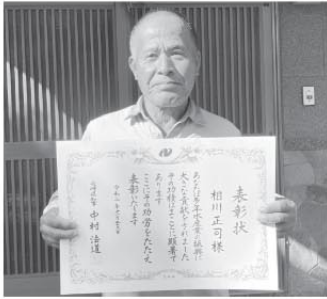 表彰状
相川正司様
あなたは多年水産業の振興に
大きな貢献をされました
その功績はまことに顕著で
あります
ここにその功労をたたえ
表彰いたします
長崎県知事 中村法道